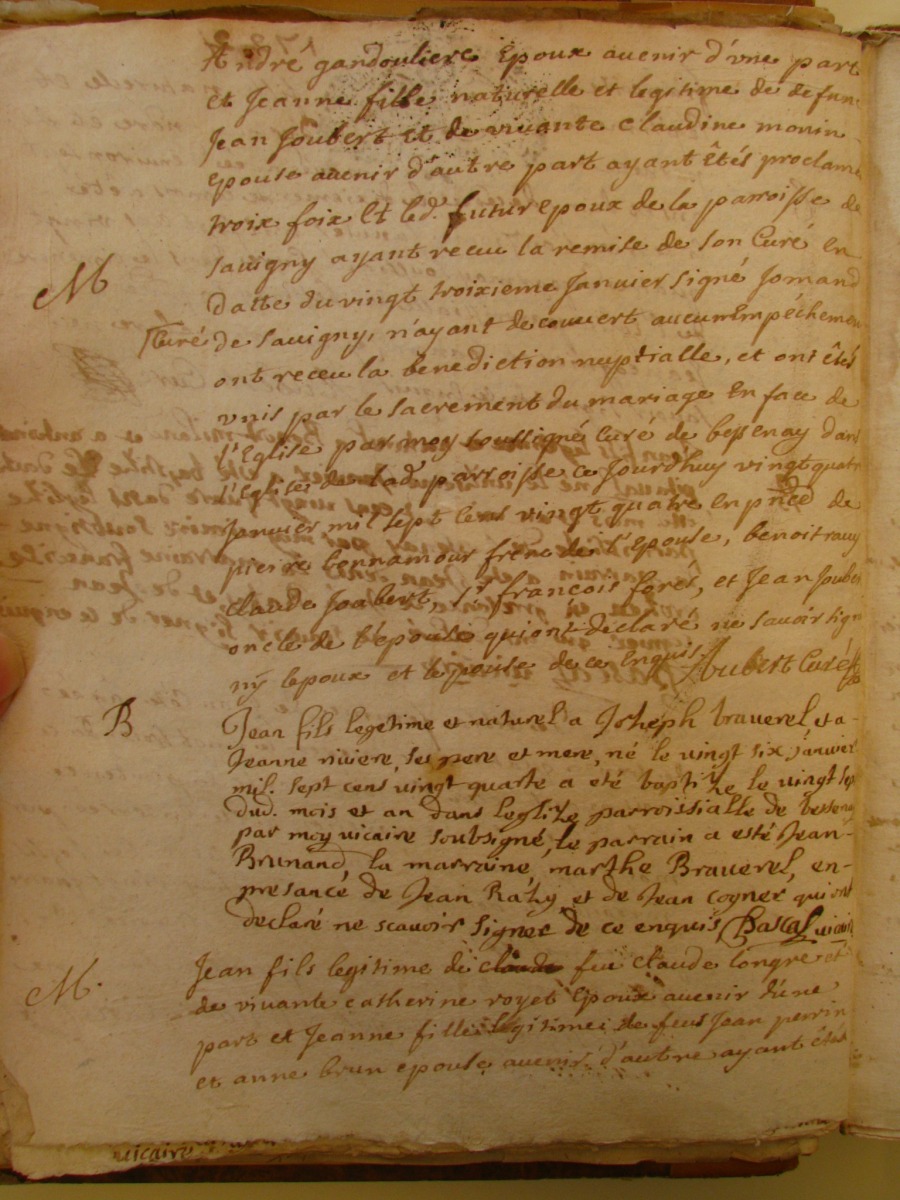 André gandouliere Epoux auenir d'vne part
et Jeanne fille naturelle et legitime de defun
Jean Joubert Et de viuante claudine monin
Epouse auenir d'autre part ayant êtés proclamé
troix foix Et led. futur epoux de la parroisse de
Sauigny ayant receu la remise de son Curé en
datte du vingt troixieme Januier signé Jomand
M
Curé de Sauigny, n'ayant decouuert aucun empéchemen
ont receu la benediction nuptialle, et ont êtés
vnis par le sacrement du mariage En face de
l'Eglise par moy soussigné Curé de besenay dans
l'Eglise de lad. parroisse ce Jourdhuy vingt quatr
Januier mil sept cens vingt quatre en pnce de
pierre bennamour frere de l'epouse, benoit
claude Joubert, Sr. francois fores, et Jean Joube
oncle de l'epouse qui ont declaré ne sauoir sign
ny lepoux et lepouse de ce Enquis. Aubert Curé
B
Jean fils legetime et naturel a Joseph brauerel et a-
Jeanne riuiere, ses pere et mere, né le vingt six januier
mil. sept cens vingt quarte a eté baptize le vingt sep
dud. mois et an dans leglize parroissialle de bessena
par moy uicaire soubsigné, le parrain a esté Jean-
Brunand, la marraine, marthe Brauerel, en-
presance de Jean Raty et de Jean cogner qui ont
declaré ne scauoir signer de ce enquis Pascal uicaire
M.
Jean fils legitime de claude feu claude longre et
de viuante catherine royet Epoux auenir d'une
part et Jeanne fille legitime de feus Jean perrin
et anne brun epouse auenir d'autre ayant êtés
uicaire